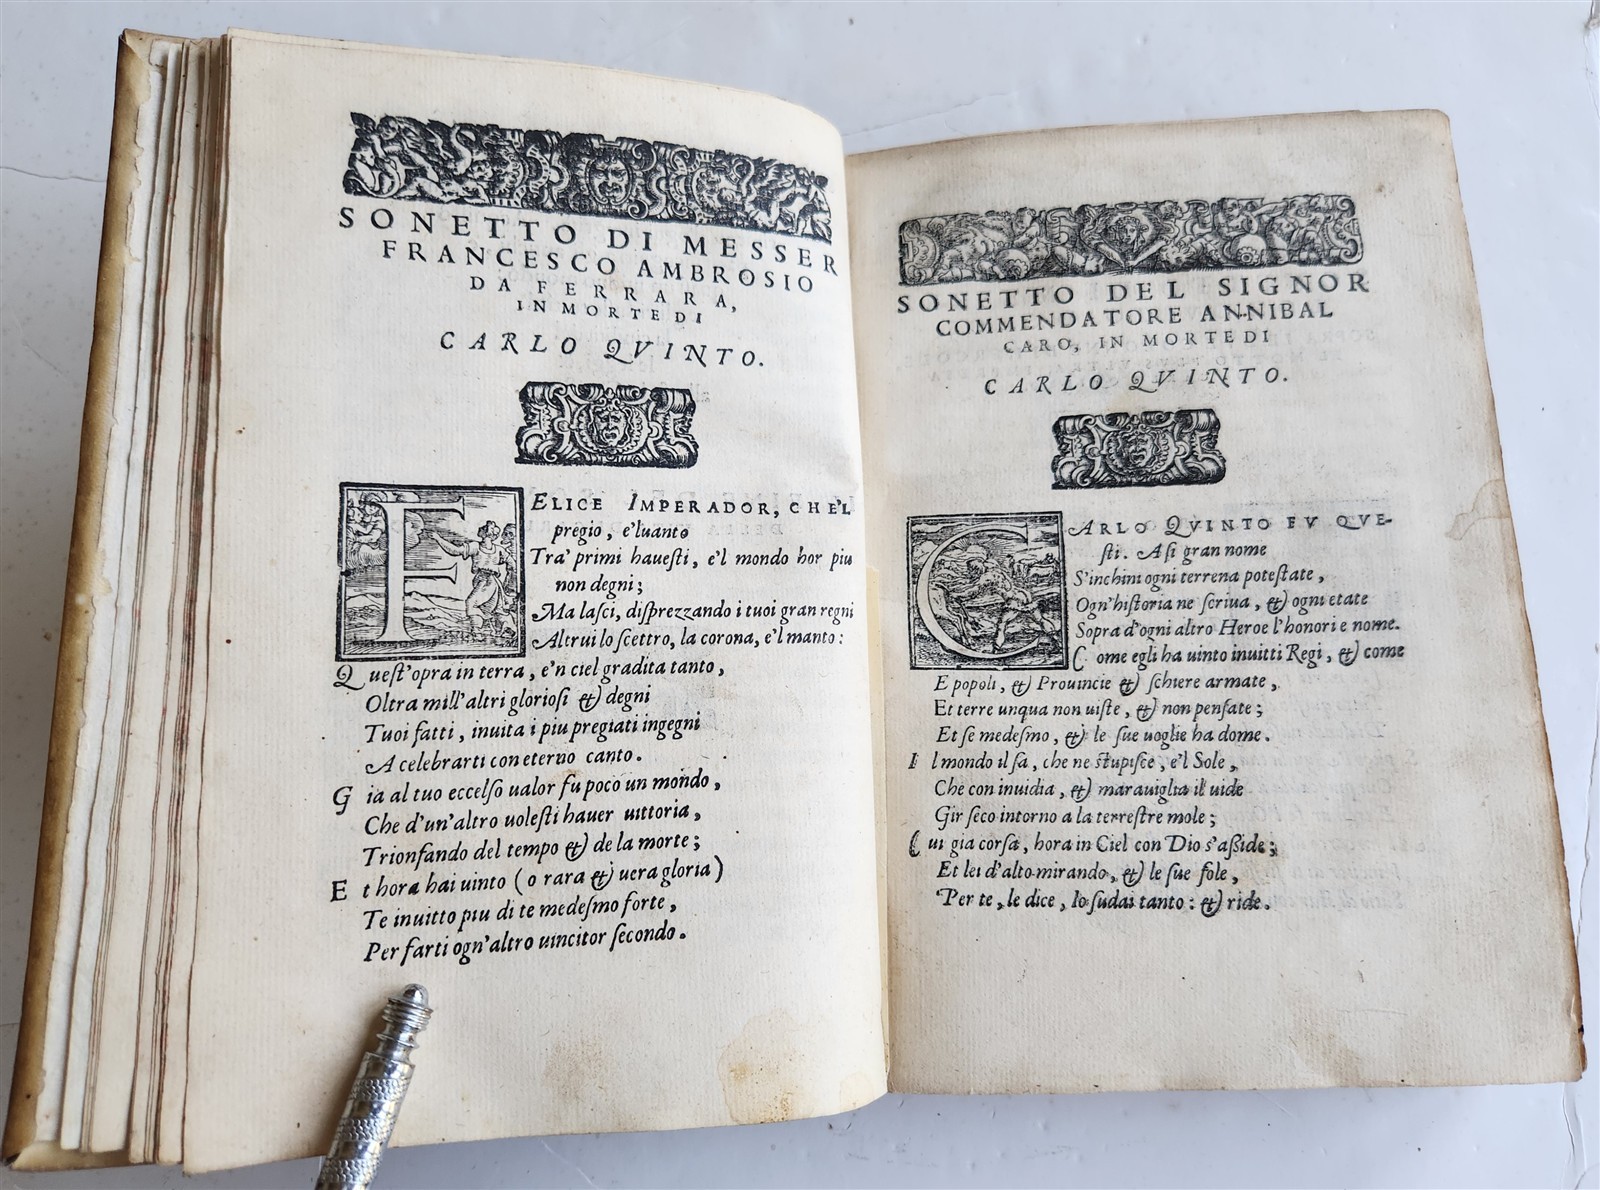 SONETTO DI MESSER
FRANCESCO AMBROSIO
DA FERRARA,
IN MORTE DI
CARLO QVINTO.
FELICE IMPERADOR, CHE'L
pregio, e'luanto
Tra' primi hauesti, e'l mondo hor piu
non degni;
Ma lasci, disprezzando i tuoi gran regni
Altrui lo scettro, la corona, e'l manto:
Quest'opra in terra, e'n ciel gradita tanto,
Oltra mill'altri gloriosi & degni
Tuoi fatti, inuita i piu pregiati ingegni
A celebrarti con eterno canto.
Gia al tuo eccelso ualor fu poco un mondo,
Che d'un'altro uolesti hauer uittoria,
Trionfando del tempo & de la morte;
Et hora hai uinto (o rara & uera gloria)
Te inuitto piu di te medesmo forte,
Per farti ogn'altro uincitor secondo.
SONETTO DEL SIGNOR
COMMENDATORE ANNIBAL
CARO, IN MORTE DI
CARLO QVINTO.
CARLO QVINTO FV QVE-
sti. A si gran nome
S'inchini ogni terrena potestate,
Ogn'historia ne scriua, & ogni etate
Sopra d'ogni altro Heroe l'honori e nome.
Come egli ha uinto inuitti Regi, & come
E popoli, & Prouincie & schiere armate,
Et terre unqua non uiste, & non pensate;
Et se medesmo, & le sue uoglie ha dome.
Il mondo il sa, che ne stupisce, e'l Sole,
Che con inuidia, & marauiglia il uide
Gir seco intorno a la terrestre mole;
Cui gia corsa, hora in Ciel con Dio s'asside;
Et lei d'alto mirando, & le sue fole,
Per te, le dice, lo sudai tanto: & ride.